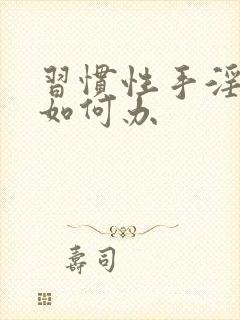 習慣性手淫
如何办
壽司